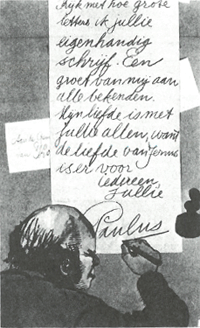 Kijk met hoe grote
letters ik jullie
eigenhandig
schrijf. Een
groet van mij aan
alle bekenden.
Mijn liefde is met
jullie allen, want
de liefde van Jezus
is er voor
iedereen
Jullie
Paulus